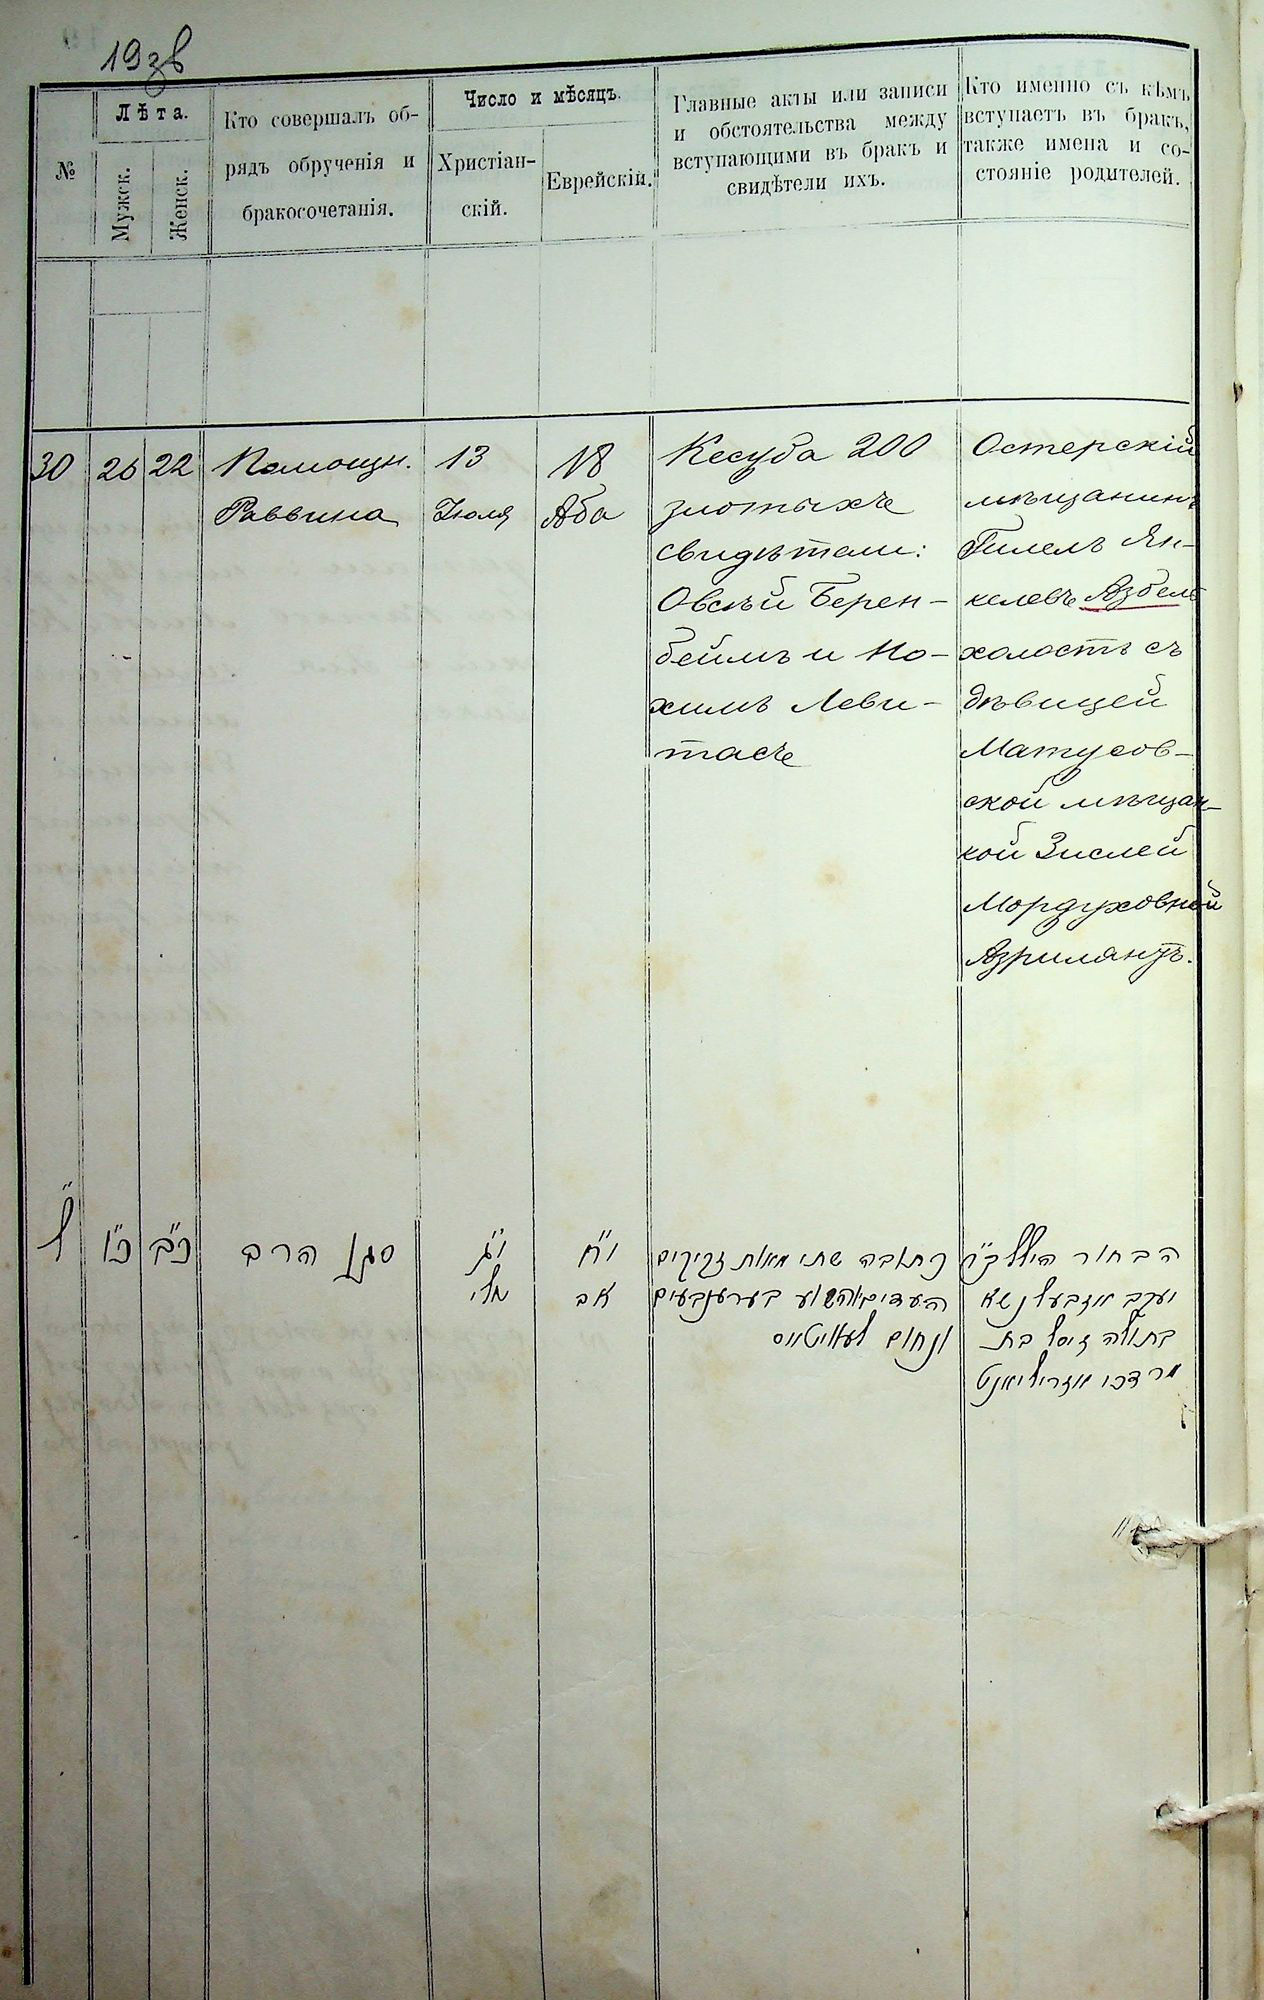 19зв
№
Лѣта.
Мужск.
Женск.
Кто совершалъ об-
рядъ обрученія и
бракосочетанія.
Число и мѣсяцъ.
Христіан-
скій.
Еврейскій.
Главные акты или записи
и обстоятельства между
вступающими въ бракъ и
свидѣтели ихъ.
Кто именно съ кѣмъ
вступаетъ въ бракъ,
также имена и со-
стояніе родителей.
30
26
22
Помощн.
Раввина
13
Іюля
18
Аба
Кесуба 200
злотыхъ
свидѣтели:
Овсѣй Берен-
беймъ и Но-
химъ Леви-
тасъ
Остерскій
мѣщанинъ
Гилелъ Ян-
келевъ Азбель
холостъ съ
дѣвицей
Матусов-
ской мѣщан-
кой Зислей
Мордуховной
Азрилянтъ.
ל"
כ"ו
כ"ב
סגן הרב
י"ג
יולי
י"ח
אב
כתובה שתי מאות זקוקים
העדים יהושע בערענבעים
ונחום לעוויטאס
הבחור הילל ב"ר
יעקב אזבעל נשא
בתולה זיסל בת
מרדכי אזריליאנט